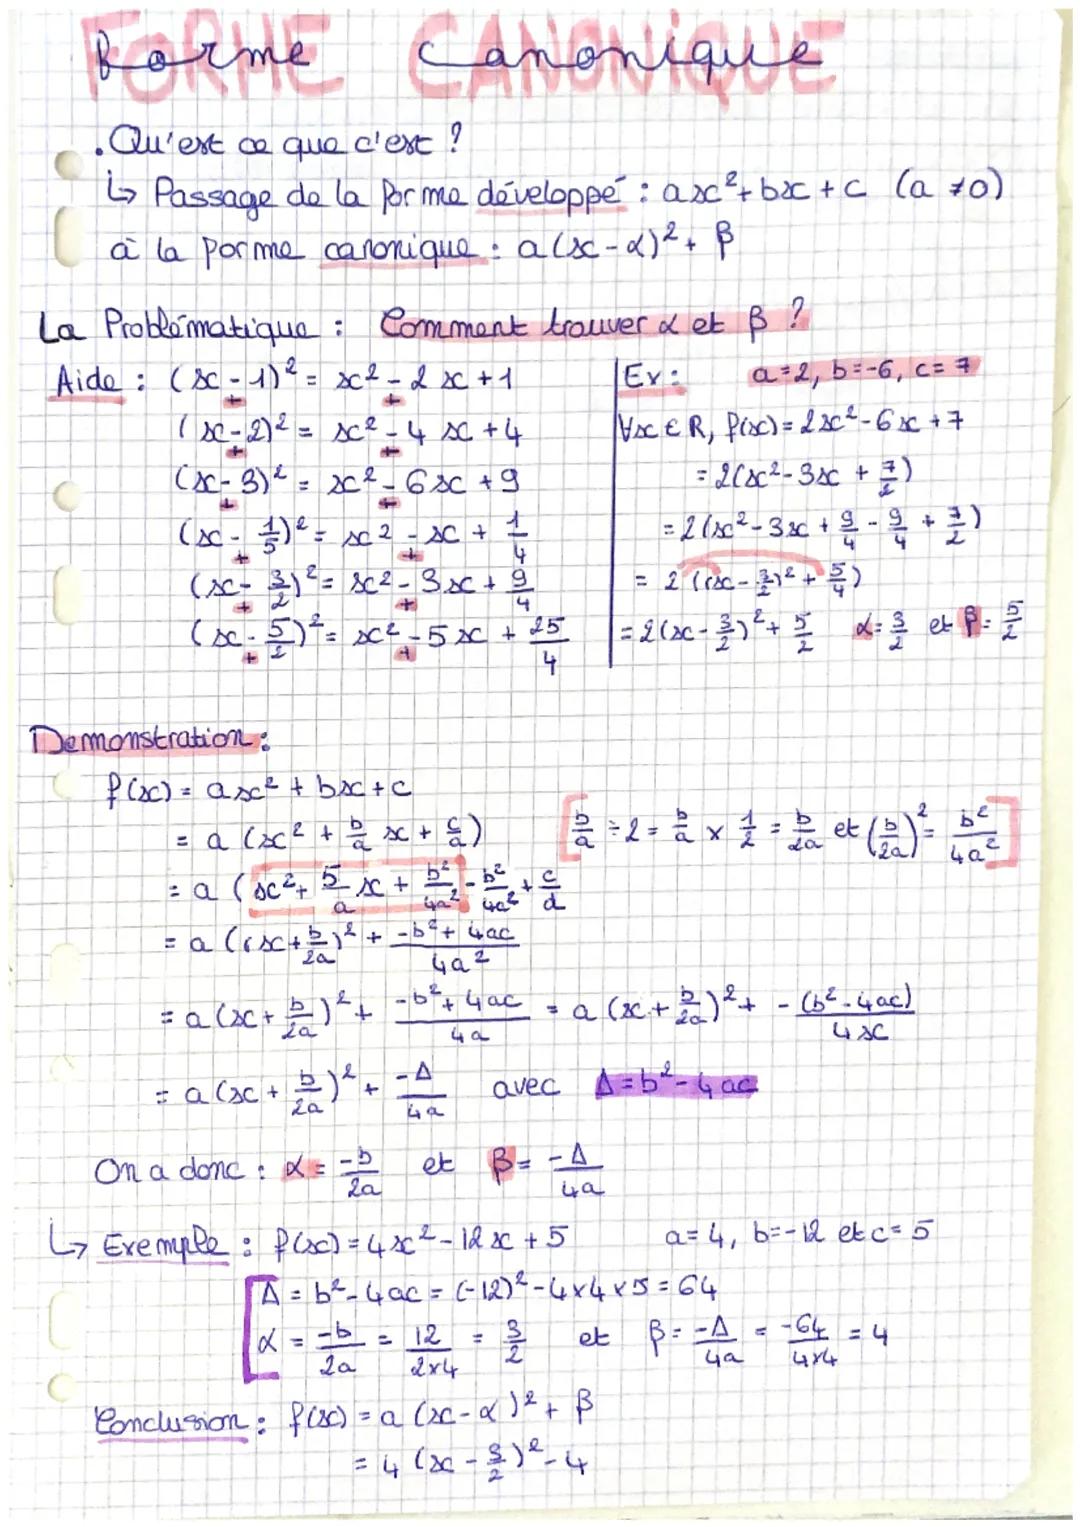 Forme Canonique
. Qu'est ce que c'est ?
↳ Passage de la forme développé : ax² + bx + c (a ≠ 0)
à la forme canonique : a(x - α)² + β
La Problématique : Comment trouver α et β ?
Aide : (x - 1)² = x² - 2x + 1
+ +
(x - 2)² = x² - 4x + 4
+ +
(x - 3)² = x² - 6x + 9
+ +
(x - 1/5)² = x² - x + 1/4
+ +
(x - 3/2)² = x² - 3x + 9/4
+ +
(x - 5/2)² = x² - 5x + 25/4
+ +
Ex : a = 2, b = -6, c = 7
∀x ∈ R, f(x) = 2x² - 6x + 7
= 2(x² - 3x + 7/2)
= 2(x² - 3x + 9/4 - 9/4 + 7/2)
= 2((x - 3/2)² + 5/4)
= 2(x - 3/2)² + 5/2 α = 3/2 et β = 5/2
Demonstration :
f(x) = ax² + bx + c
= a (x² + b/a x + c/a) [b/a ÷ 2 = b/a × 1/2 = b/2a et (b/2a)² = b²/4a²]
= a (x² + 5/a x + b²/4a² - b²/4a² + c/d
= a ((x + b/2a)² + -b² + 4ac/4a²
= a(x + b/2a)² + -b² + 4ac/4a = a (x + b/2a)² + -(b² - 4ac)/4x
= a(x + b/2a)² + -Δ/4a avec Δ = b² - 4ac
On a donc : α = -b/2a et β = -Δ/4a
↳ Exemple : f(x) = 4x² - 12x + 5 a = 4, b = -12 et c = 5
Δ = b² - 4ac = (-12)² - 4×4×5 = 64
α = -b/2a = 12/2×4 = 3/2 et β = -Δ/4a = -64/4×4 = 4
Conclusion : f(x) = a (x - α)² + β
= 4 (x - 3/2)² - 4